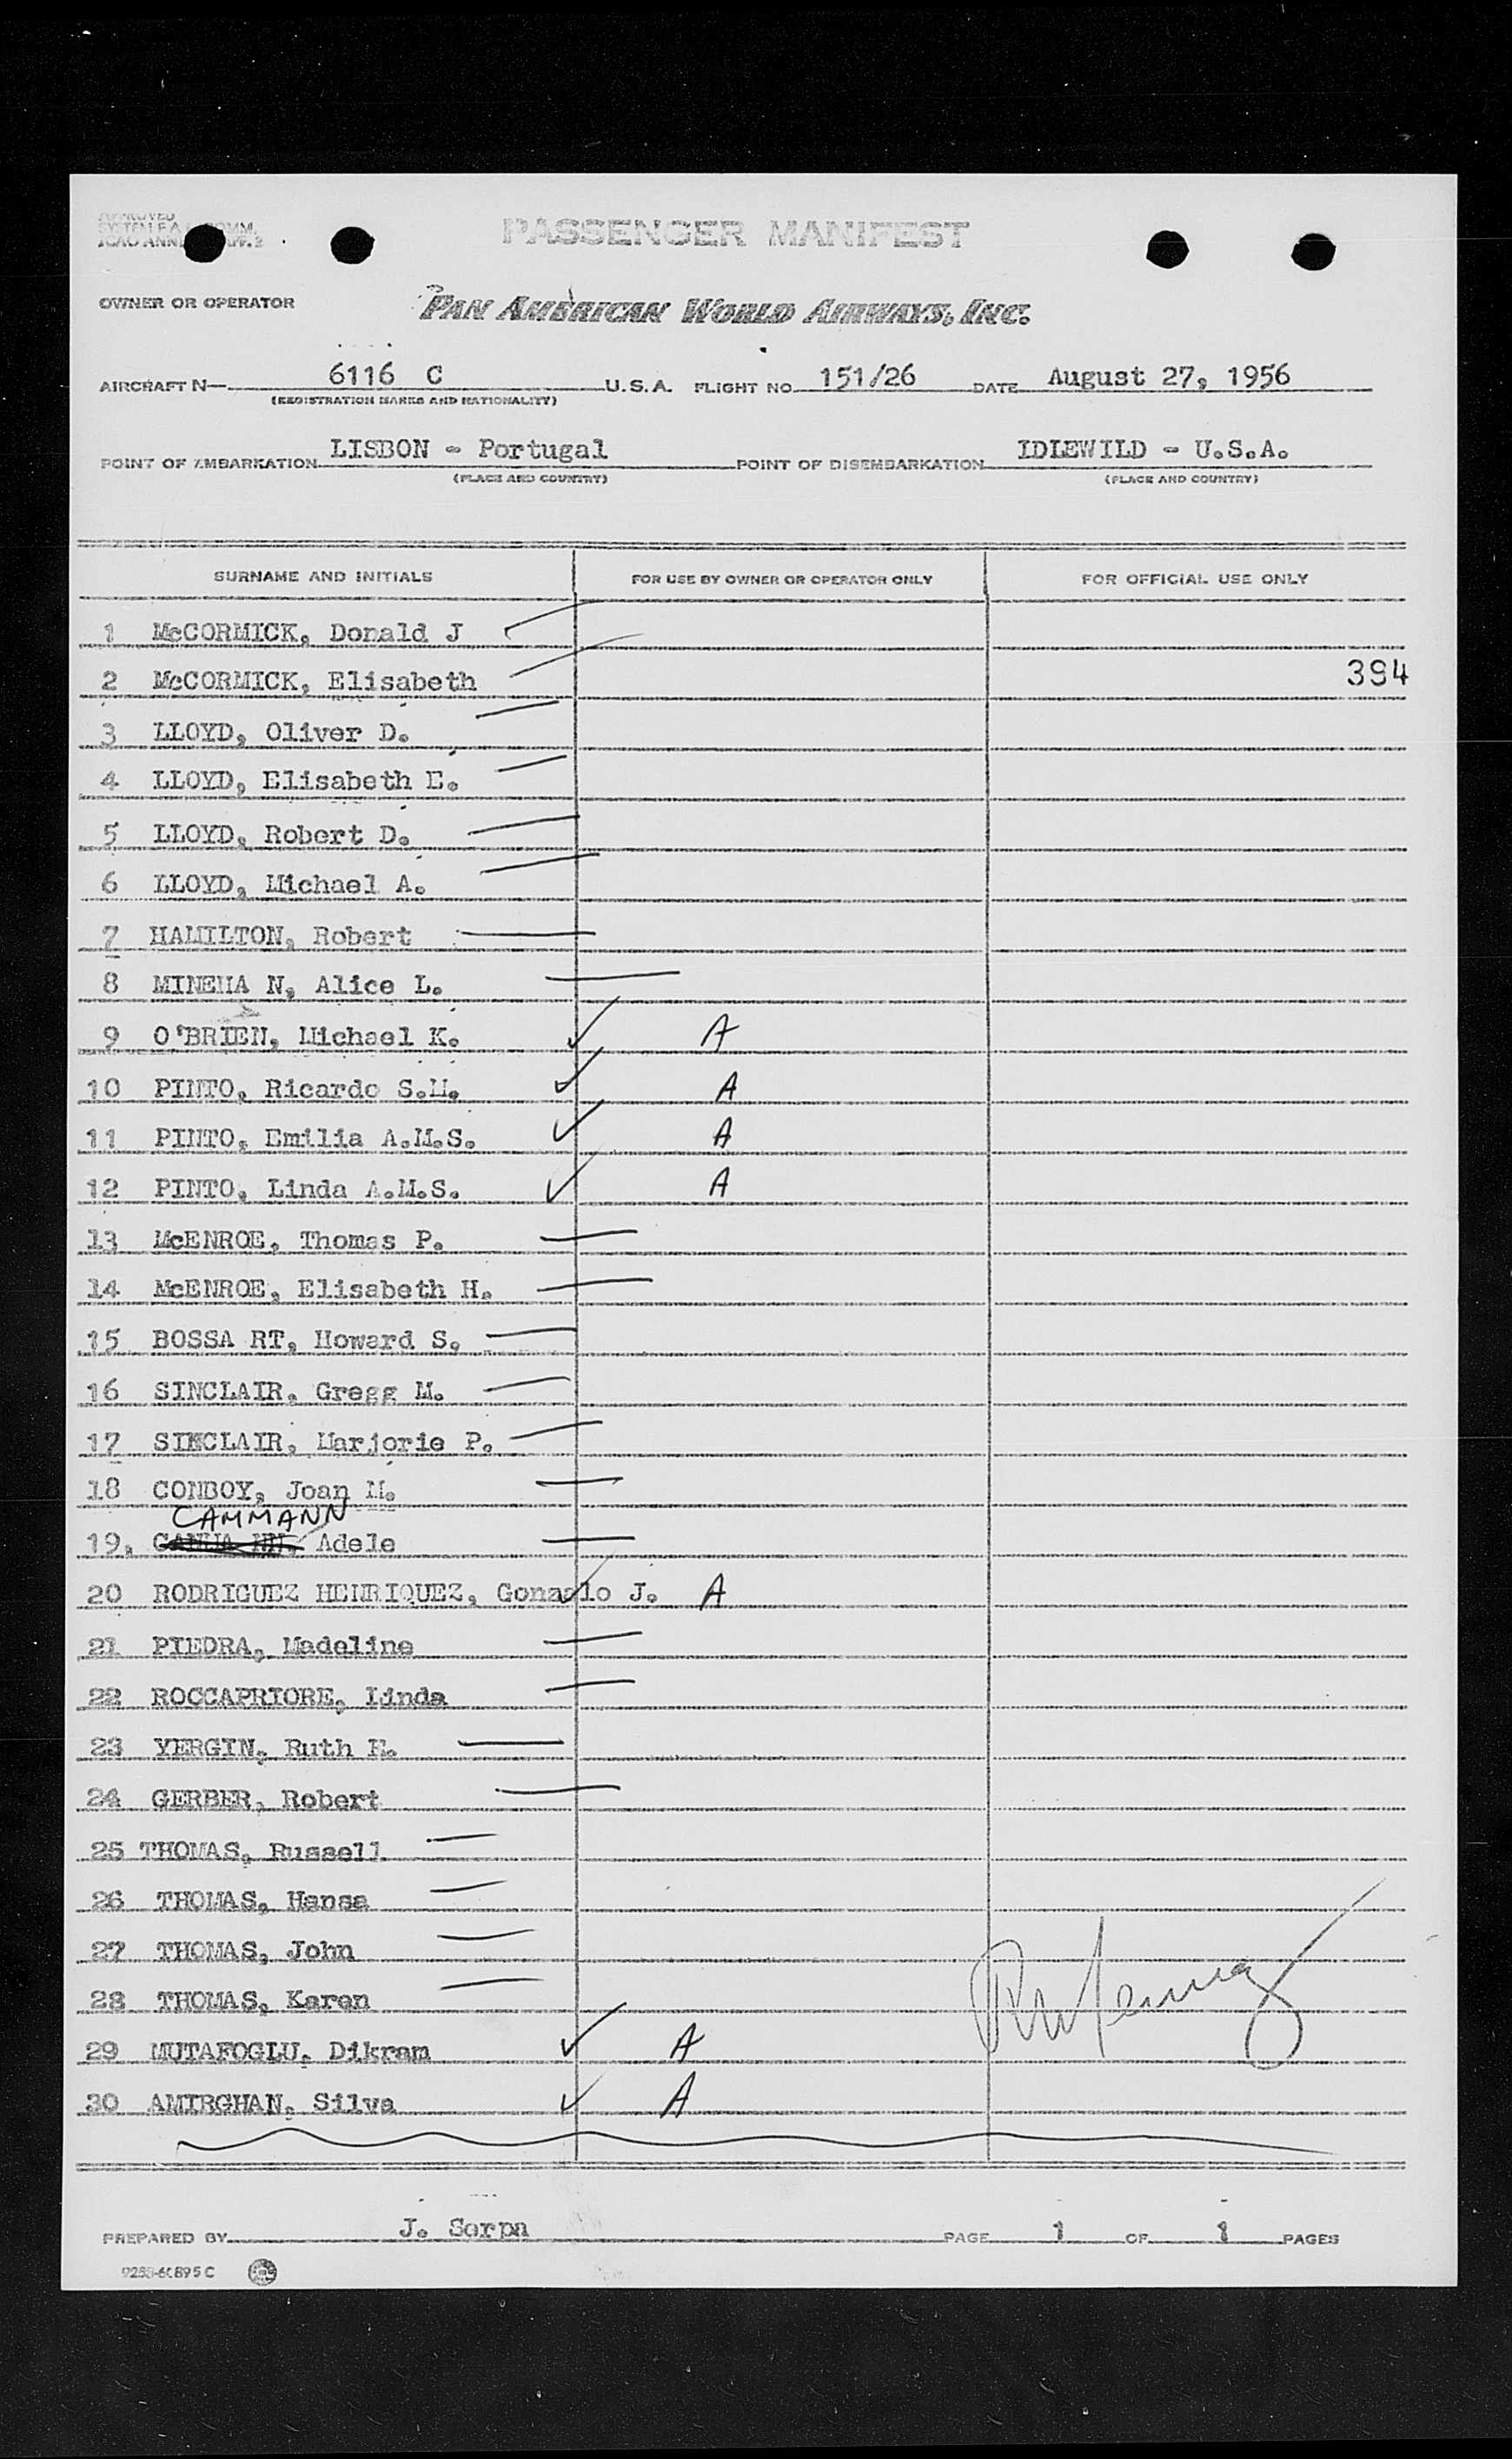 APPROVED
SYSTEM F.A.L. COMM.
ICAO ANNEX APP. 3
PASSENGER MANIFEST
OWNER OR OPERATOR PAN AMERICAN WORLD AIRWAYS, INC.
AIRCRAFT N— 6116 C U.S.A. FLIGHT NO. 151/26 DATE August 27, 1956
(REGISTRATION MARKS AND NATIONALITY)
POINT OF EMBARKATION LISBON - Portugal POINT OF DISEMBARKATION IDLEWILD - U.S.A.
(PLACE AND COUNTRY) (PLACE AND COUNTRY)
SURNAME AND INITIALS FOR USE BY OWNER OR OPERATOR ONLY FOR OFFICIAL USE ONLY
1 McCORMICK, Donald J
2 McCORMICK, Elisabeth 394
3 LLOYD, Oliver D.
4 LLOYD, Elisabeth E.
5 LLOYD, Robert D.
6 LLOYD, Michael A.
7 HAMILTON, Robert
8 MINEHA N, Alice L.
9 O'BRIEN, Michael K. ✓ A
10 PINTO, Ricardo S.M. ✓ A
11 PINTO, Emilia A.M.S. ✓ A
12 PINTO, Linda A.M.S. ✓ A
13 McENROE, Thomas P.
14 McENROE, Elisabeth H.
15 BOSSA RT, Howard S.
16 SINCLAIR, Gregg M.
17 SINCLAIR, Marjorie P.
18 CONBOY, Joan M.
CAMMANN
19. Adele
20 RODRIGUEZ HENRIQUEZ, Gonzalo J. ✓ A
21 PIEDRA, Madeline
22 ROCCAPRIORE, Linda
23 YERGIN, Ruth E.
24 GERBER, Robert
25 THOMAS, Russell
26 THOMAS, Hansa
27 THOMAS, John
28 THOMAS, Karen
29 MUTAFOGLU, Dikram ✓ A
30 AMIRGHAN, Silva ✓ A
PREPARED BY J. Serpa PAGE 1 OF 1 PAGES